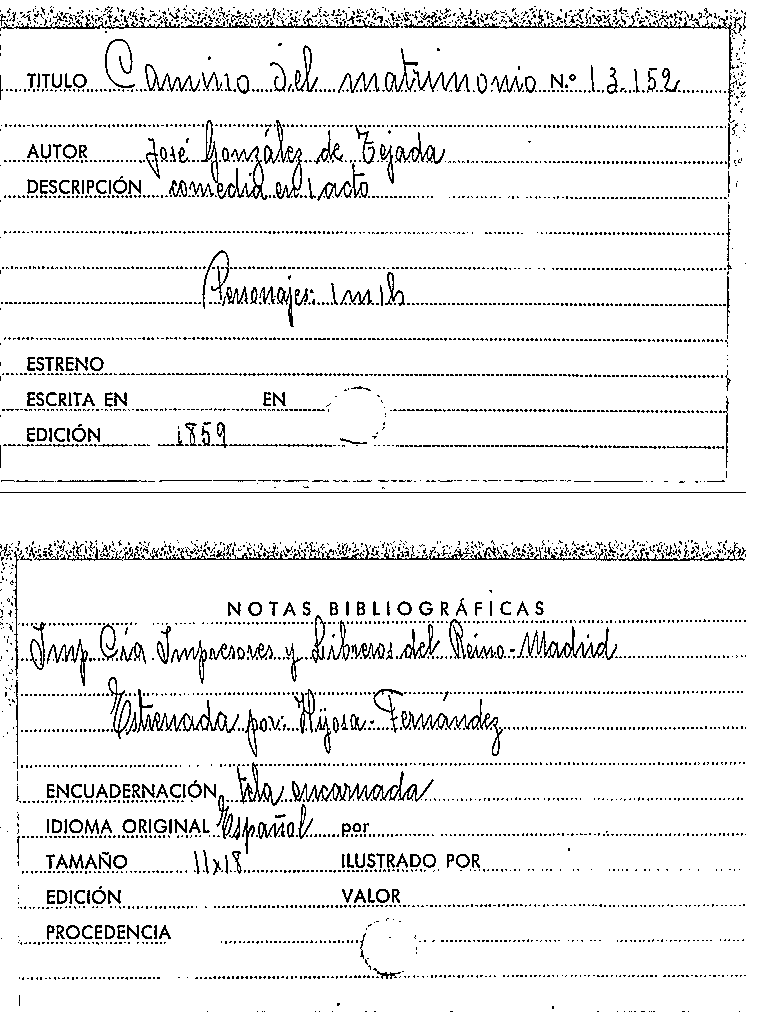 TITULO Camino del matrimonio N.º 13.152
AUTOR José González de Tejada
DESCRIPCIÓN comedia en 1 acto
Personajes: 1 m 1 h
ESTRENO
ESCRITA EN EN
EDICIÓN 1859
NOTAS BIBLIOGRÁFICAS
Imp. Cía. Impresores y Libreros del Reino-Madrid
Estrenada por: Hijosa-Fernández
ENCUADERNACIÓN tela encarnada
IDIOMA ORIGINAL Español por
TAMAÑO 11x18 ILUSTRADO POR
EDICIÓN VALOR
PROCEDENCIA